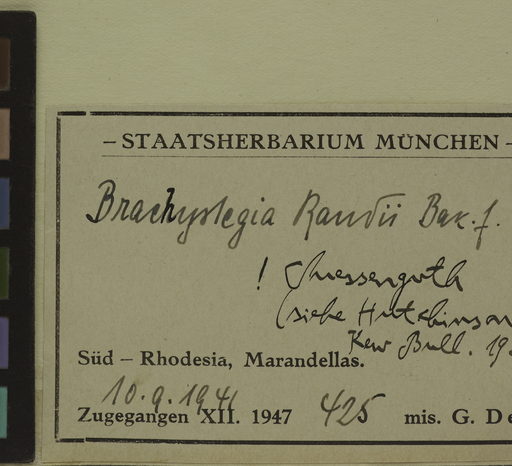 – STAATSHERBARIUM MÜNCHEN –
Brachystegia Randii Bak. f.
! Suessenguth
(siehe Hutchinson
Kew Bull. 19
Süd – Rhodesia, Marandellas.
10.9.1941
Zugegangen XII. 1947 425 mis. G. De